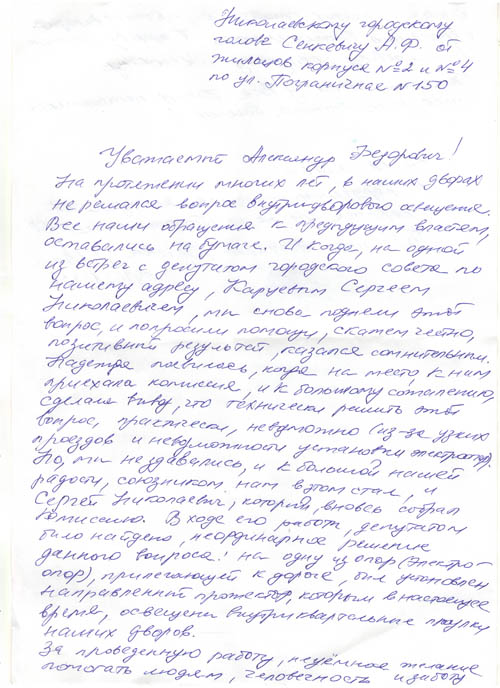 Николаевскому городскому
голове Сенкевичу А.Ф. от
жильцов корпуса №2 и №4
по ул. Пограничная №150
Уважаемый Александр Фёдорович!
На протяжении многих лет, в наших дворах
не решался вопрос внутридворового освещения.
Все наши обращения к предыдущим властям,
оставались на бумаге. И когда, на одной
из встреч с депутатом городского совета по
нашему адресу, Сергеем
Николаевичем, мы снова подняли этот
вопрос, и попросили помощи, скажем честно,
позитивный результат, казался сомнительным.
Надежда появилась, когда на место, к нам
приехала комиссия, и к большому сожалению,
сделала вывод, что технически решить этот
вопрос, практически, невозможно (из-за узких
проездов и невозможности установки электроопор).
Но, мы не здавались, и к большой нашей
радости, союзником нам в этом стал, и
Сергей Николаевич, который, вновь собрал
комиссию. В ходе его работы, депутатом
было найдено, неординарное решение
данного вопроса! на одну из опор (электро-
опор), прилегающей к дороге, был установлен
направленный прожектор, которым в настоящее
время, освещены внутриквартальные
наших дворов.
За проведенную работу, неуёмное желание
помогать людям, человечность и заботу